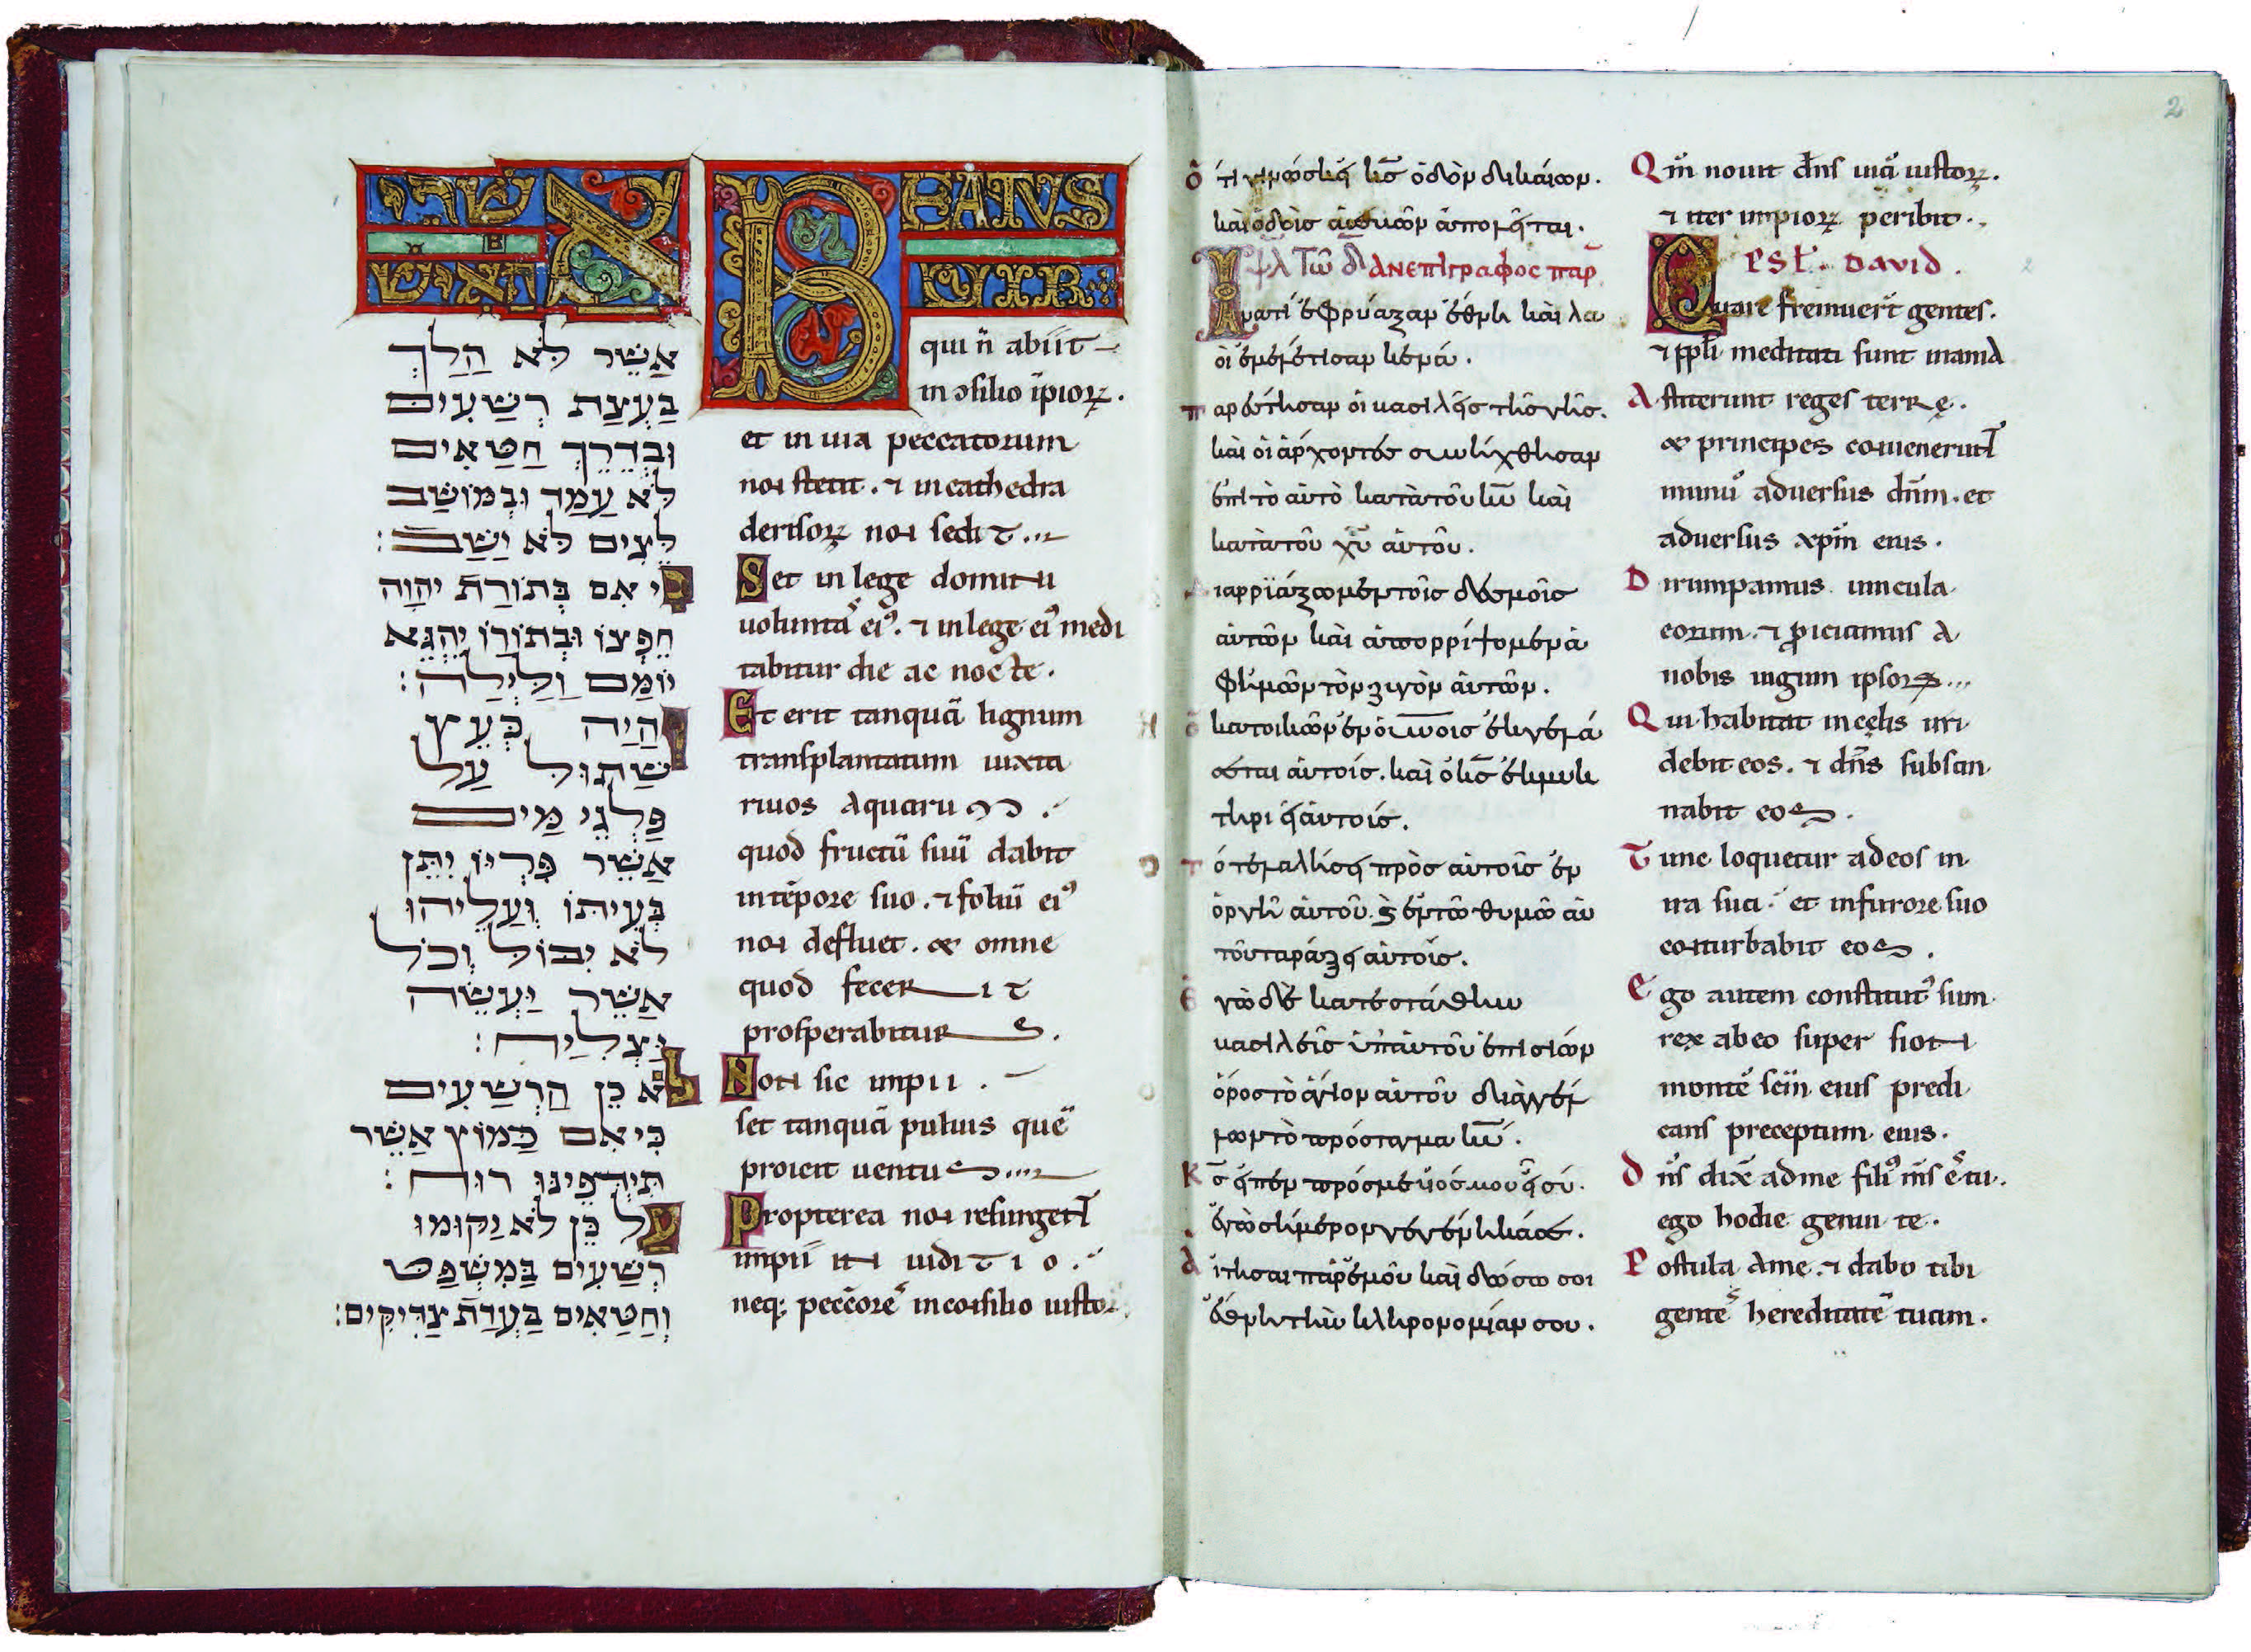 אשרי
האיש
אֲשֶׁר לֹּא הַלַךְ
בַּעֲצַת רְשַׁעִים
וּבְדֵרֵךְ חַטַּאִים
לֹּא עַמַד וּבְמוֹשַׁב
לֵּצִים לֹּא יַשַׁב:
כִּי אִם בְּתוֹרַת יהוה
חֵפְצוֹ וּבְתוֹרוֹ יֵהְגֵּא
יוֹמַם וַלַּיְלַה:
והַיַה כְּעֵץ
שַׁתוּל עַל
פַּלְגֵי מַיִם
אֲשֵׁר פִּרְיוֹ יִתֵּן
בְּעִיתּוֹ וְעַלֵיהוּ
לֹא יִבּוֹל וְכֹל
אֲשֵׁר יַעְשֵׂה
יַצְלִיַח:
לֹא כֵן הַרְשַׁעִים
כִּי אִם כַּמּוֹץ אֲשֵׁר
תִּידְפֵינוּ רוּח:
עַל כֵּן לֹא יַקוּמוּ
רְשַׁעִים בַּמִשְׁפַּט
וְחַטַּאִים בַּעְדַת צַדִּיקִים:
BEATUS
VIR
qui n̄ abiit
in ɔsilio īpioꝝ.
et in uia peccatorum
non stetit. ⁊ in cathedra
derisoꝝ non sedit
Set in lege domini
uolunta᷒ ei᷒. ⁊ in lege ei᷒ medi
tabitur die ac nocte.
Et erit tanquā lignum
transplantatum iuxta
riuos aquarum.
quod fructū suū dabit
in tēpore suo. ⁊ foliū ei᷒
non defluet. & omne
quod fecerit
prosperabitur.
Non sic impii.
set tanquā puluis quē
proicit uentus
Propterea non resurgent
impii in iuditio.
neq; peccōre᷒ in consilio iustoꝝ
ὅτι γινώσκει κ̅ς̅ ὁδὸν δικαίων.
καὶ ὁδὸις ἀσεβῶν ἀπολεῖται.
ψαλ τῶ δαδ ἀνεπιγραφος παρ
Ινατί ἐφρύαξαν ἔθνη καὶ λα
οὶ ἐμελέτισαν κενά.
παρέστησαν οἱ βασιλεῖς τῆς γῆς.
καὶ οἱ ἄρχοντές συνήχθησαν
ἐπὶ τὸ ἀυτὸ κατὰ τοῦ κ̅υ̅ καὶ
κατὰ τοῦ χ̅υ̅ ἀυτοῦ.
Διαρρίάξωμεν τοῖς δέσμοῖς
ἀυτῶν καὶ ἀπορρίψομεν ἀ
φήμῶν τὸν ζιγὸν ἀυτῶν.
Ὁ κατοικῶν ἐν ὀυ̅νοις ἐκγελά
σεται ἀυτοίς. καὶ ὁ κ̅ς̅ ἐκμυκ
τηριεῖ ἀυτοίς.
τότε λαλήσει πρὸς ἀυτοῖς ἐν
ὀργῆ ἀυτοῦ. ϗ ἐντῶ θυμῶ ἀυ
τοῦ ταράξει ἀυτοῖς.
Ἐγὼ δὲ κατεστάθην
βασιλεῖς ὑπ ἀυτοῦ ἐπὶ σιών
ὄρος τὸ ἅγιον ἀυτοῦ διὰγγέλ
λων τὸ πρόσταγμα κ̅υ̅.
Κ̅ς̅ εἶπεν πρόσμε ὑιός μου εἶ σύ.
ἐγὼ σήμερον γεγέννηκά σε.
Αἴτησαι παρ ἐμοῦ καὶ δώσω σοι
ἔθνη τὴν κληρονομίαν σου.
Qm̄ nouit dn̄s uiā iustoꝝ.
⁊ iter impioꝝ peribit.
PSL. DAVID.
Quare fremuer̄t gentes.
⁊ ppli meditati sunt inania
Astiterunt reges terrę.
& principes conuenerunt
in unū aduersus dn̄m. et
aduersus xp̄m eius.
Dirumpamus uincula
eorum. ⁊ ꝓiciamus a
nobis iugum ipsoꝝ
Qui habitat in cęlis irri
debit eos. ⁊ dn̄s subsan
nabit eos.
Tunc loquetur ad eos in
ira sua. et in furore suo
conturbabit eos.
Ego autem constitut᷒ sum
rex ab eo super sion
montē scm̄ eius predi
cans preceptum eius.
Dn̄s dix̄ ad me fili᷒ m̄s ē tu.
ego hodie genui te.
Postula a me. ⁊ dabo tibi
gente᷒ hereditatē tuam.
2